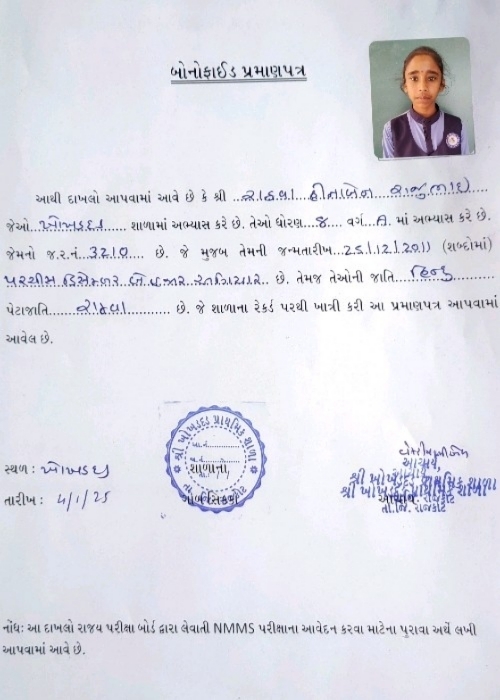 બોનોફાઈડ પ્રમાણપત્ર
આથી દાખલો આપવામાં આવે છે કે શ્રી ..રાઠવા હીનાબેન રાજુભાઇ....
જેઓ ..ખોખડદડ...... શાળામાં અભ્યાસ કરે છે. તેઓ ધોરણ ..8... વર્ગ..A. માં અભ્યાસ કરે છે.
જેમનો જ.ર.નં.3210....... છે. જે મુજબ તેમની જન્મતારીખ ..25/12/2011 (શબ્દોમાં)
પચ્ચીસ ડિસેમ્બર બે હજાર અગિયાર .. છે. તેમજ તેઓની જાતિ ...હિન્દુ.........
પેટાજાતિ.......રાઠવા........... છે. જે શાળાના રેકર્ડ પરથી ખાત્રી કરી આ પ્રમાણપત્ર આપવામાં
આવેલ છે.
શ્રી ખોખડદડ પ્રાથમિક શાળા
શાળાના
ગોળ સિક્કો
સ્થળ : ખોખડદડ
તારીખ : 4/1/25
આચાર્ય,
શ્રી ખોખડદડ પ્રાથમિક શાળા
તા.જિ. રાજકોટ
નોંધ: આ દાખલો રાજ્ય પરીક્ષા બોર્ડ દ્વારા લેવાતી NMMS પરીક્ષાના આવેદન કરવા માટેના પુરાવા અર્થે લખી
આપવામાં આવે છે.